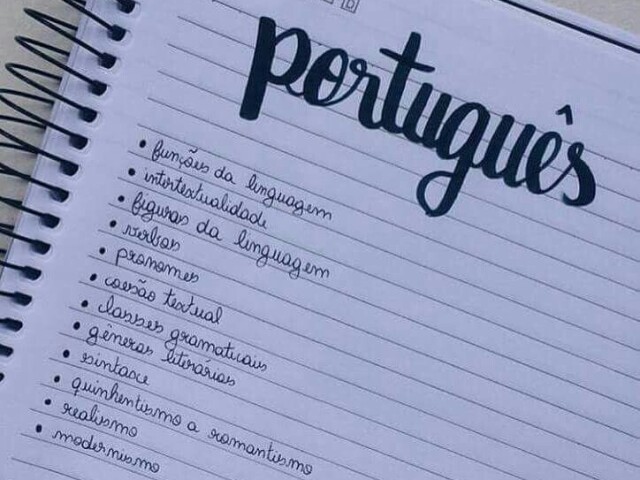 português
• funções da linguagem
• intertextualidade
• figuras da linguagem
• verbos
• pronomes
• coesão textual
• classes gramaticais
• gêneros literários
• sintaxe
• quinhentismo a romantismo
• realismo
• modernismo